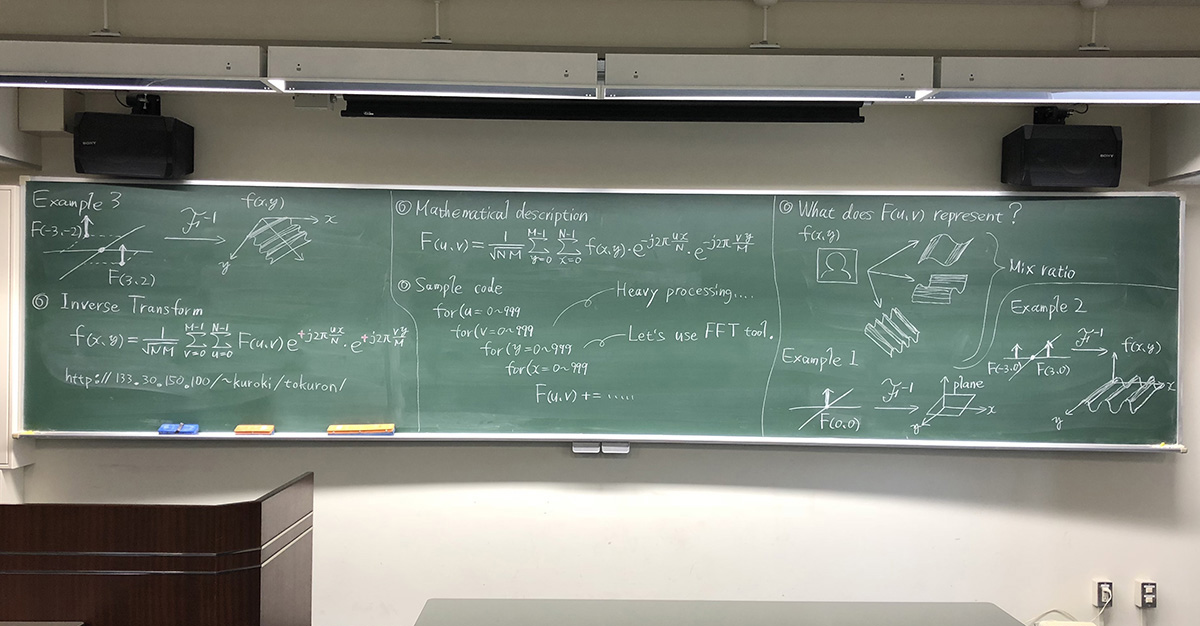 SONY
SONY
Example 3
F(-3,-2)
F(3,2)
𝓕⁻¹
f(x,y)
x
y
◎ Inverse Transform
f(x,y) = 1/√NM Σ_{v=0}^{M-1} Σ_{u=0}^{N-1} F(u,v) e^{+j2π ux/N} · e^{+j2π vy/M}
http://133.30.150.100/~kuroki/tokuron/
◎ Mathematical description
F(u,v) = 1/√NM Σ_{y=0}^{M-1} Σ_{x=0}^{N-1} f(x,y) · e^{-j2π ux/N} · e^{-j2π vy/M}
◎ Sample code
for(u=0~999
for(v=0~999
for(y=0~999
for(x=0~999
F(u,v) += .....
Heavy processing....
Let's use FFT tool.
◎ What does F(u,v) represent?
f(x,y)
Mix ratio
Example 1
F(0,0)
𝓕⁻¹
plane
x
y
Example 2
F(-3,0)
F(3,0)
𝓕⁻¹
f(x,y)
x
y